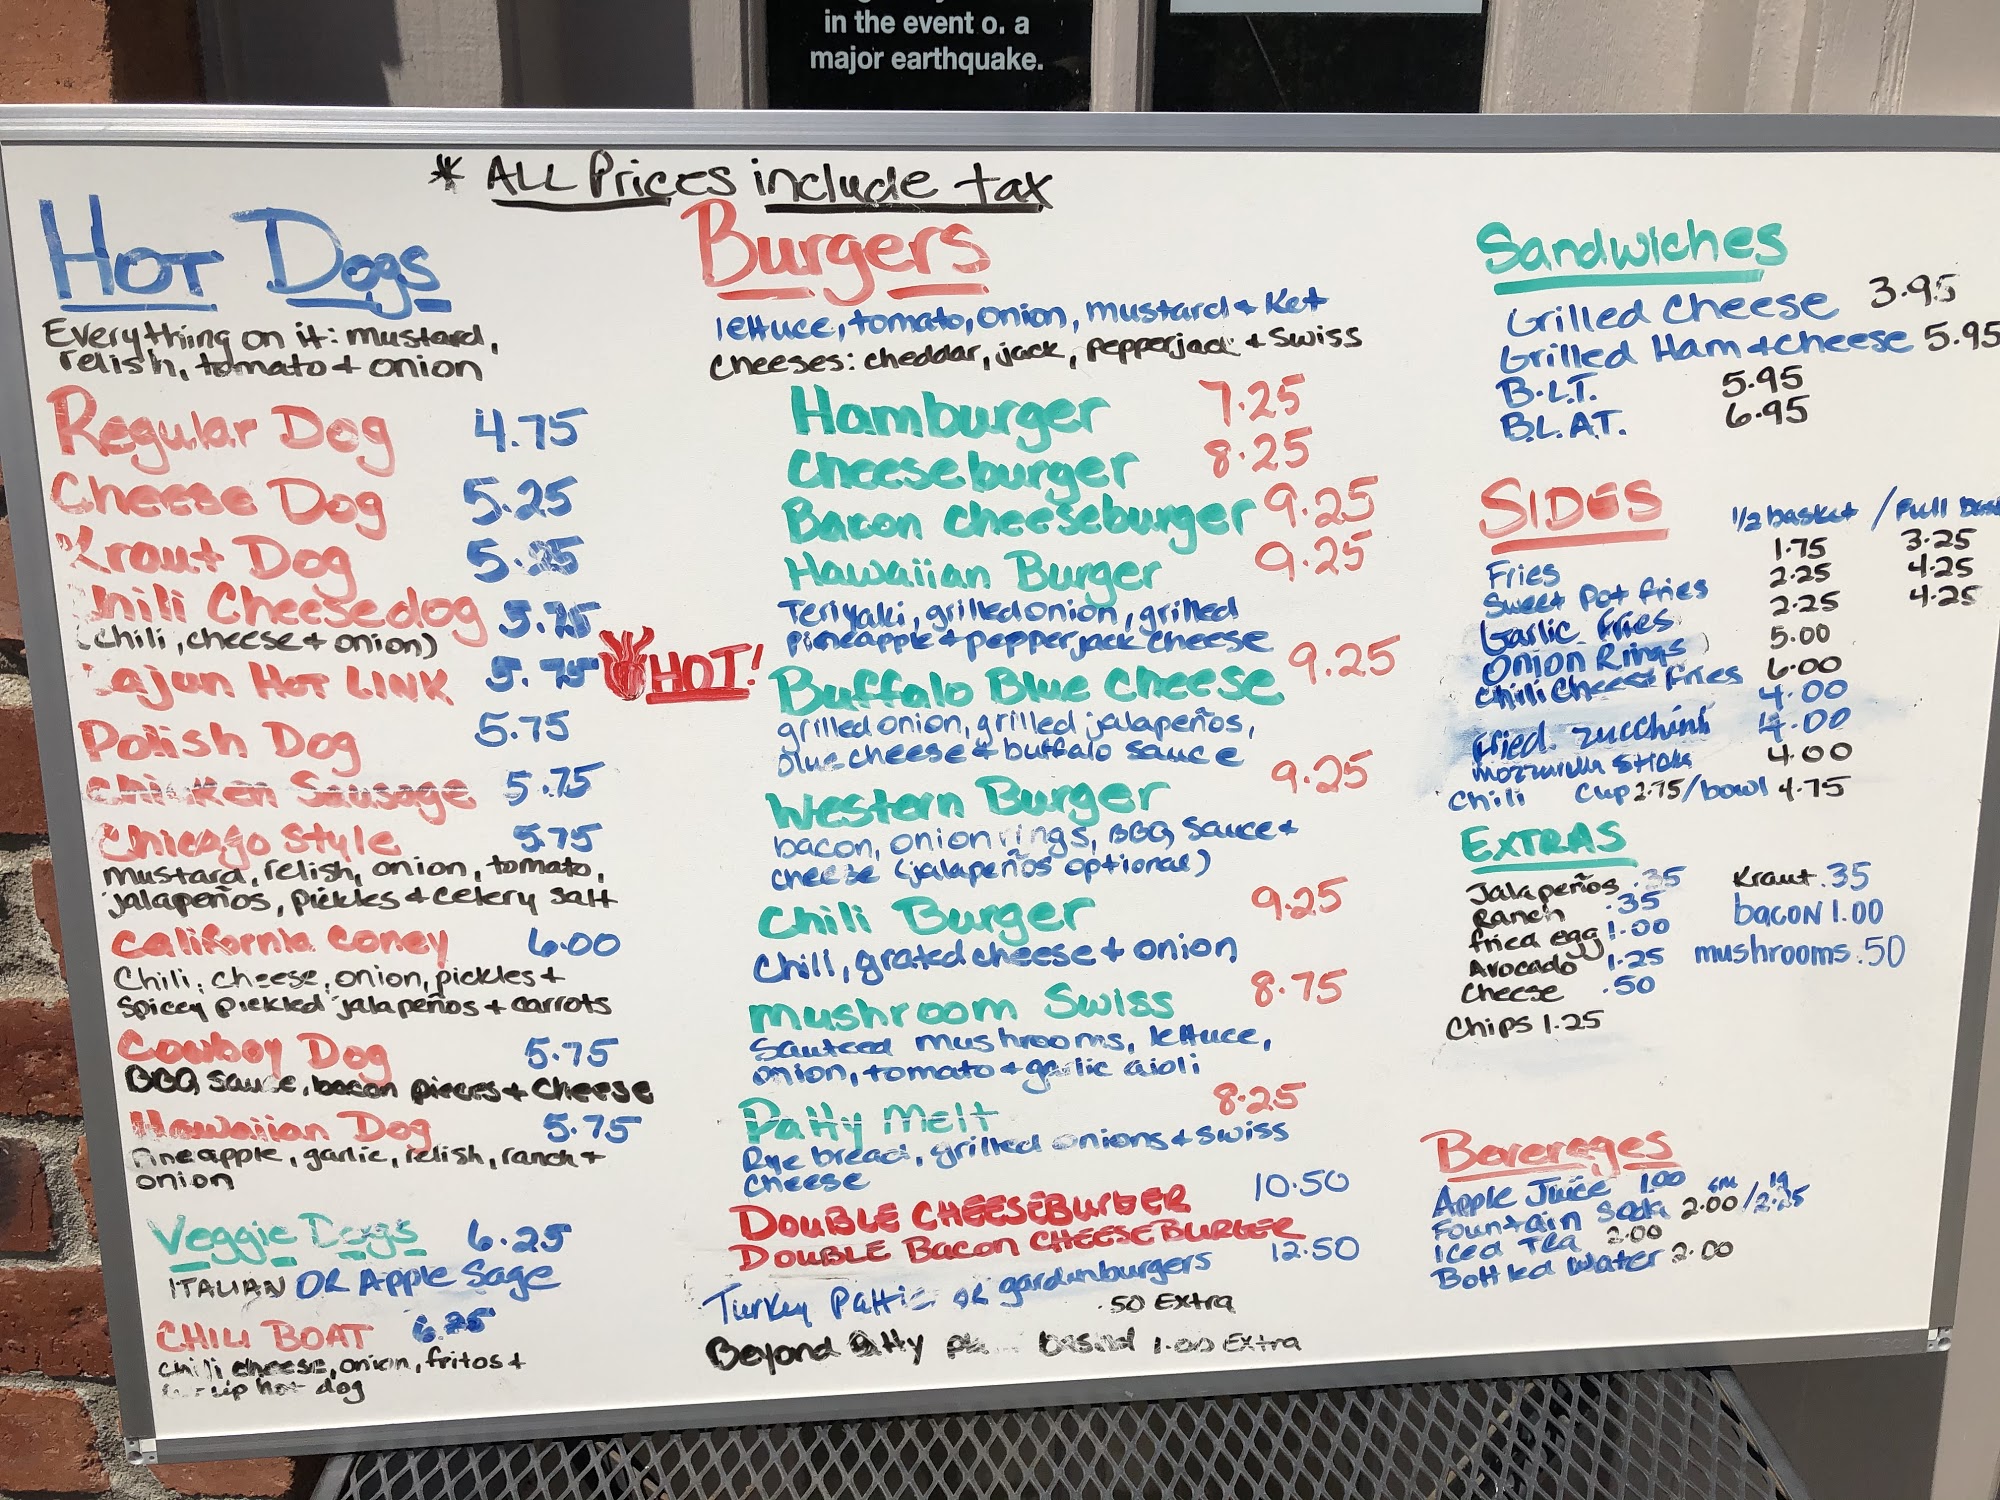 in the event o. a
major earthquake.
* ALL Prices include tax
HOT Dogs
Everything on it: mustard,
relish, tomato + onion
Regular Dog 4.75
Cheese Dog 5.25
Kraut Dog 5.25
Chili Cheesedog 5.75
(chili, cheese + onion)
Cajun HOT LINK 5.75 HOT!
Polish Dog 5.75
Chicken Sausage 5.75
Chicago Style 5.75
mustard, relish, onion, tomato,
jalapeños, pickles + celery salt
California Coney 6.00
Chili, cheese, onion, pickles +
Spicey pickled jalapeños + carrots
Cowboy Dog 5.75
BBQ sauce, bacon pieces + cheese
Hawaiian Dog 5.75
Pineapple, garlic, relish, ranch +
onion
Veggie Dogs 6.25
ITALIAN OR Apple Sage
CHILI BOAT 6.25
chili cheese, onion, fritos +
hot dog
Burgers
lettuce, tomato, onion, mustard + Ket
Cheeses: cheddar, jack, pepperjack + Swiss
Hamburger 7.25
Cheeseburger 8.25
Bacon Cheeseburger 9.25
Hawaiian Burger 9.25
Teriyaki, grilled onion, grilled
pineapple + pepperjack cheese
Buffalo Blue Cheese 9.25
grilled onion, grilled jalapeños,
blue cheese + buffalo sauce
Western Burger 9.25
bacon, onion rings, BBQ sauce +
cheese (jalapeños optional)
Chili Burger 9.25
Chili, grated cheese + onion
Mushroom Swiss 8.75
Sauteed mushrooms, lettuce,
onion, tomato + garlic aioli
Patty Melt 8.25
Rye bread, grilled onions + swiss
cheese
DOUBLE CHEESEBURGER 10.50
DOUBLE BACON CHEESEBURGER 12.50
Turkey Pattie OR gardenburgers
.50 Extra
Beyond Patty 1.00 Extra
Sandwiches
Grilled Cheese 3.95
Grilled Ham + cheese 5.95
B.L.T. 5.95
B.L.A.T. 6.95
SIDES 1/2 basket / Full
Fries 1.75 3.25
Sweet Pot Fries 2.25 4.25
Garlic Fries 2.25 4.25
Onion Rings 5.00
Chili Cheese Fries 6.00
4.00
Fried zucchini 4.00
Mozzarella Sticks 4.00
Chili Cup 2.75/bowl 4.75
EXTRAS
Jalapeños .35
Ranch .35
fried egg 1.00
Avocado 1.25
Cheese .50
Chips 1.25
Kraut .35
bacon 1.00
mushrooms .50
Beverages
Apple Juice 1.00 sm lg
Fountain Soda 2.00/2.25
Iced Tea 2.00
Bottled Water 2.00